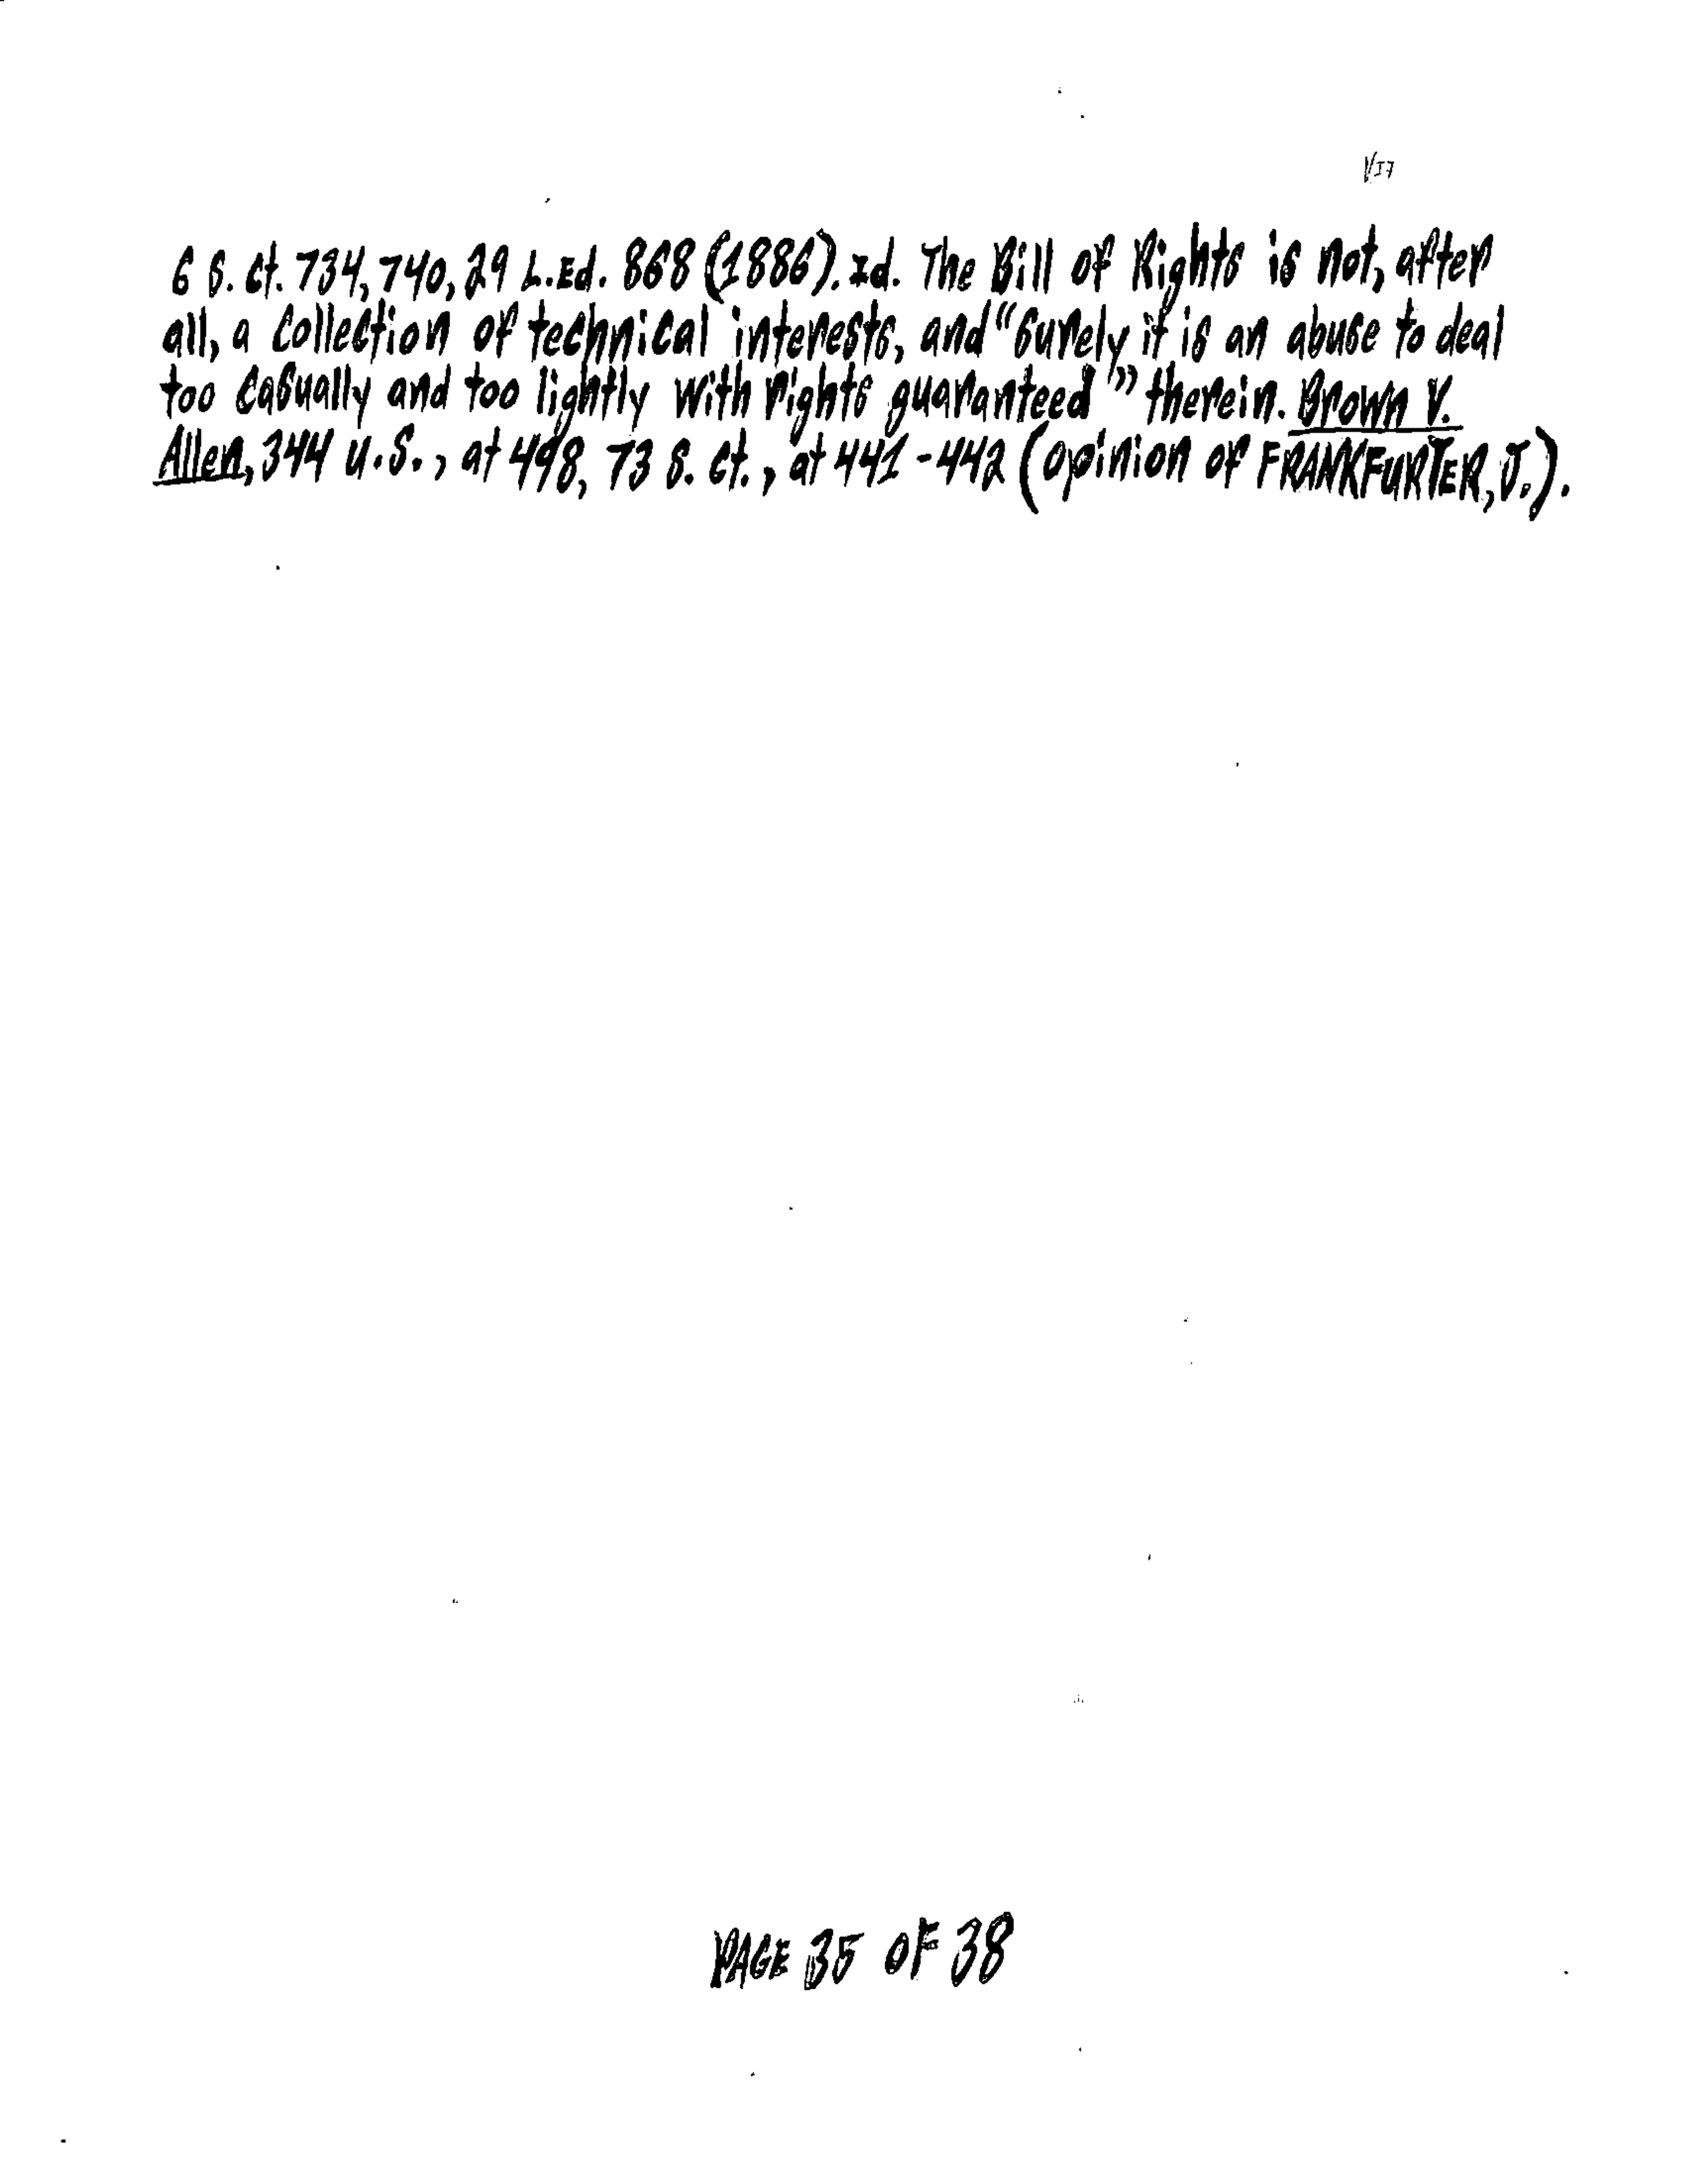 6 S. Ct. 734, 740, 29 L.Ed. 868 (1886). Id. The Bill of Rights is not, after
all, a collection of technical interests, and "surely it is an abuse to deal
too casually and too lightly with rights guaranteed" therein. Brown v.
Allen, 344 U.S., at 498, 73 S. Ct., at 441-442 (opinion of FRANKFURTER, J.).
PAGE 35 OF 38